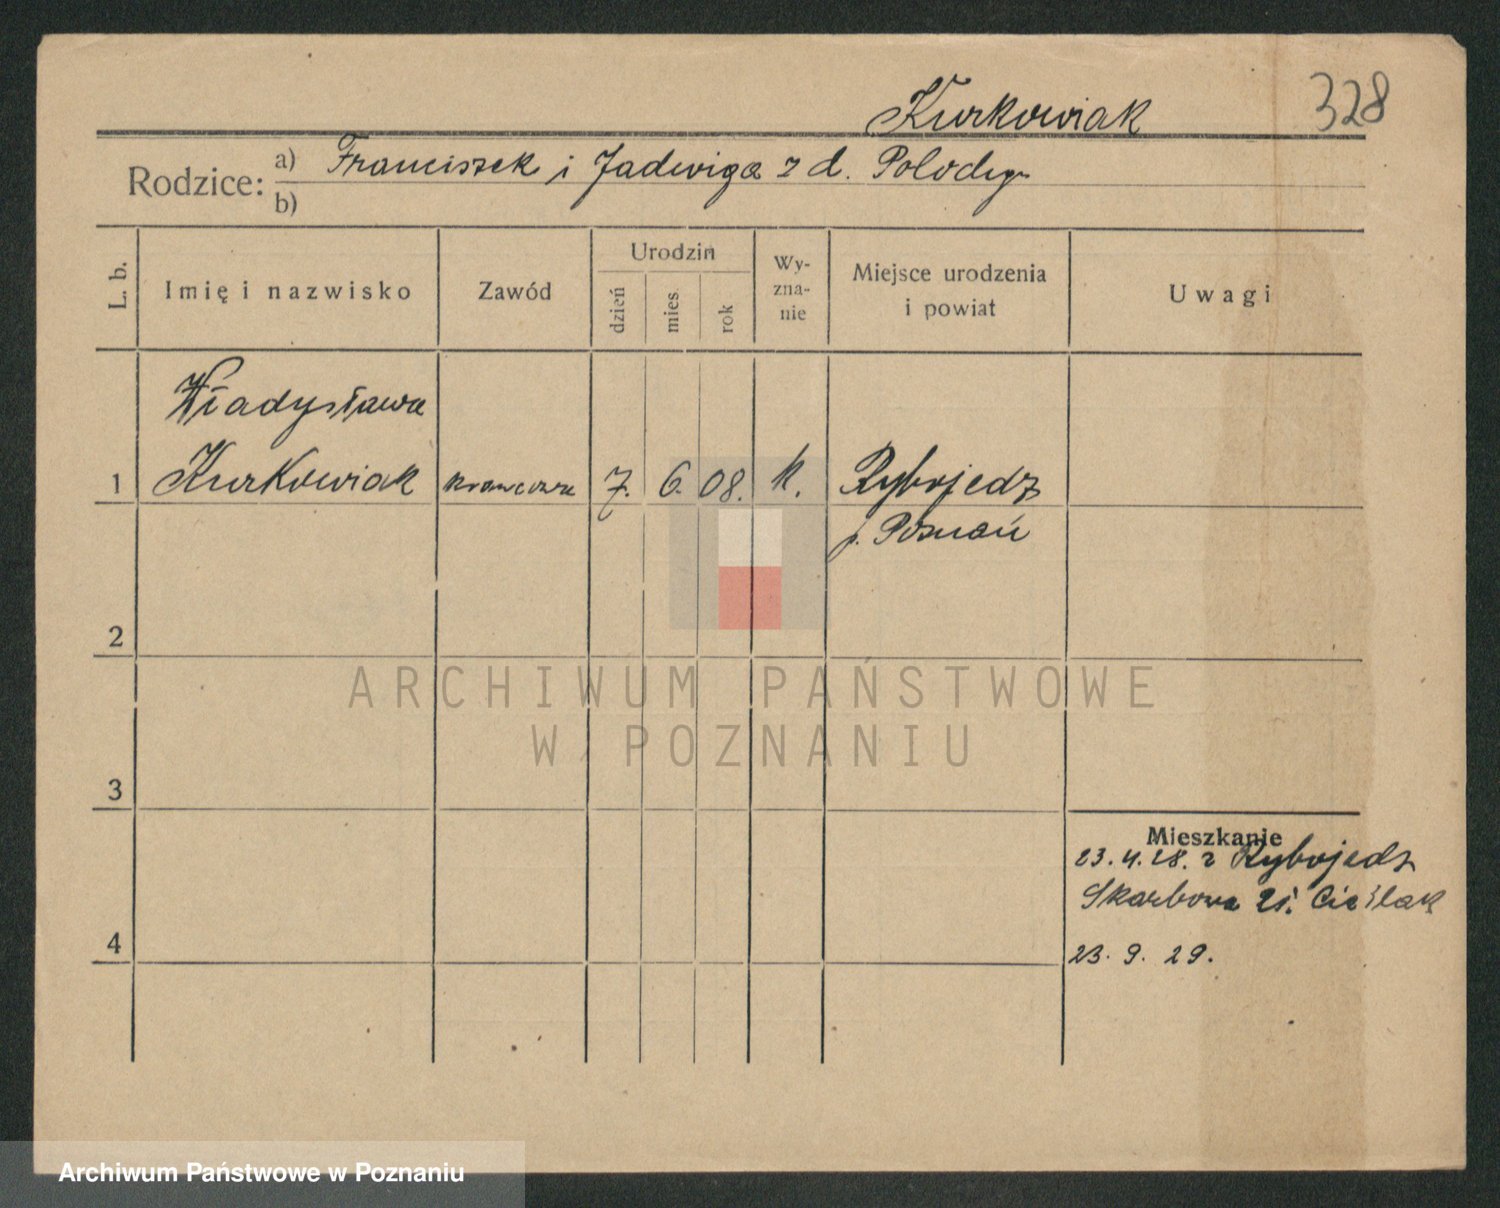 Kurkowiak 328
Rodzice: a) Franciszek i Jadwiga z d. Polody
b)
L. b. Imię i nazwisko Zawód Urodzin dzień mies. rok Wy-zna-nie Miejsce urodzenia i powiat Uwagi
Władysława
1 Kurkowiak krawcowa 7. 6. 08. k. Rybojedz
p. Poznań
2
ARCHIWUM PAŃSTWOWE
W POZNANIU
3
Mieszkanie
23. 4. 28. z Rybojedz
Skarbowa Cieślak
4
23. 9. 29.
Archiwum Państwowe w Poznaniu